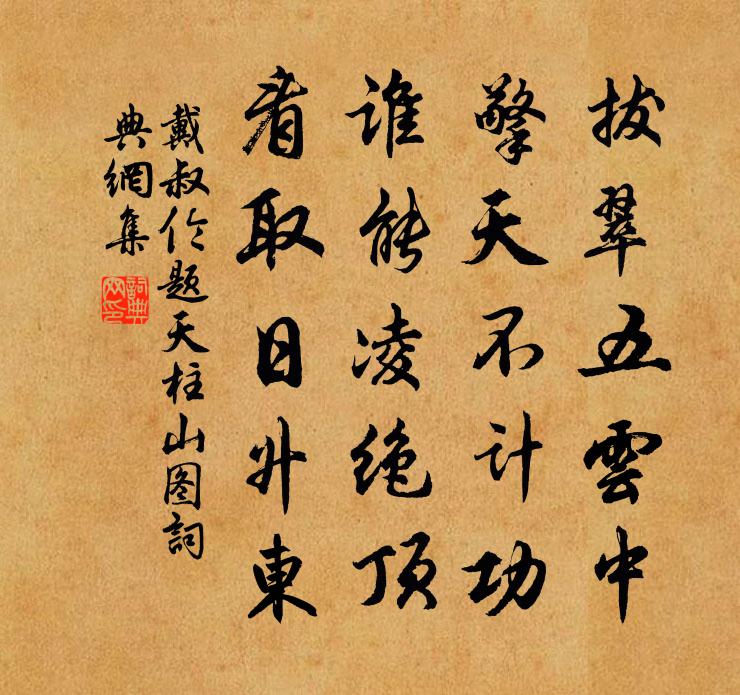 拔翠五雲中
擎天不计功
谁能凌绝顶
看取日升東
戴叔伦题天柱山图詞
典網集
詞典网印